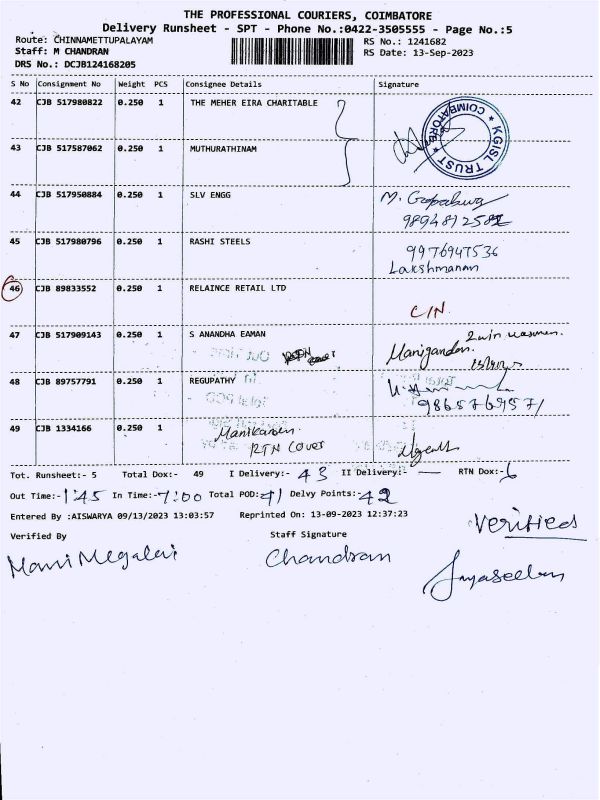 THE PROFESSIONAL COURIERS, COIMBATORE
Delivery Runsheet - SPT - Phone No.:0422-3505555 - Page No.:5
Route: CHINNAMETTUPALAYAM RS No.: 1241682
Staff: M CHANDRAN RS Date: 13-Sep-2023
DRS No.: DCJB124168205
S No Consignment No Weight PCS Consignee Details Signature
42 CJB 517980822 0.250 1 THE MEHER EIRA CHARITABLE
KGISL TRUST * COIMBATORE *
43 CJB 517587062 0.250 1 MUTHURATHINAM
44 CJB 517950884 0.250 1 SLV ENGG
45 CJB 517980796 0.250 1 RASHI STEELS 9976947536
Lakshmanan
46 CJB 89833552 0.250 1 RELAINCE RETAIL LTD
C/N.
47 CJB 517909143 0.250 1 S ANANDHA EAMAN
Manigandan.
48 CJB 89757791 0.250 1 REGUPATHY
9865769571
49 CJB 1334166 0.250 1 Manikanden
RTN Cover
Tot. Runsheet:- 5 Total Dox:- 49 I Delivery:- 43 II Delivery:- — RTN Dox:- 6
Out Time:- 1:45 In Time:- 7:00 Total POD:- 41 Delvy Points:- 42
Entered By :AISWARYA 09/13/2023 13:03:57 Reprinted On: 13-09-2023 12:37:23
Verified
Verified By Staff Signature
Mani Megalai Chandran
Jayaseelan